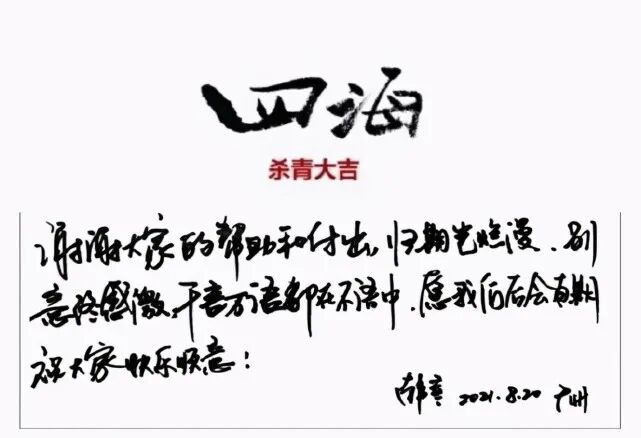 四海
杀青大吉
谢谢大家的帮助和付出，归期光烂漫、别
意终感激，千言万语都在不语中，愿我们后会有期
祝大家快乐惬意！
韩寒 2021.8.20 广州